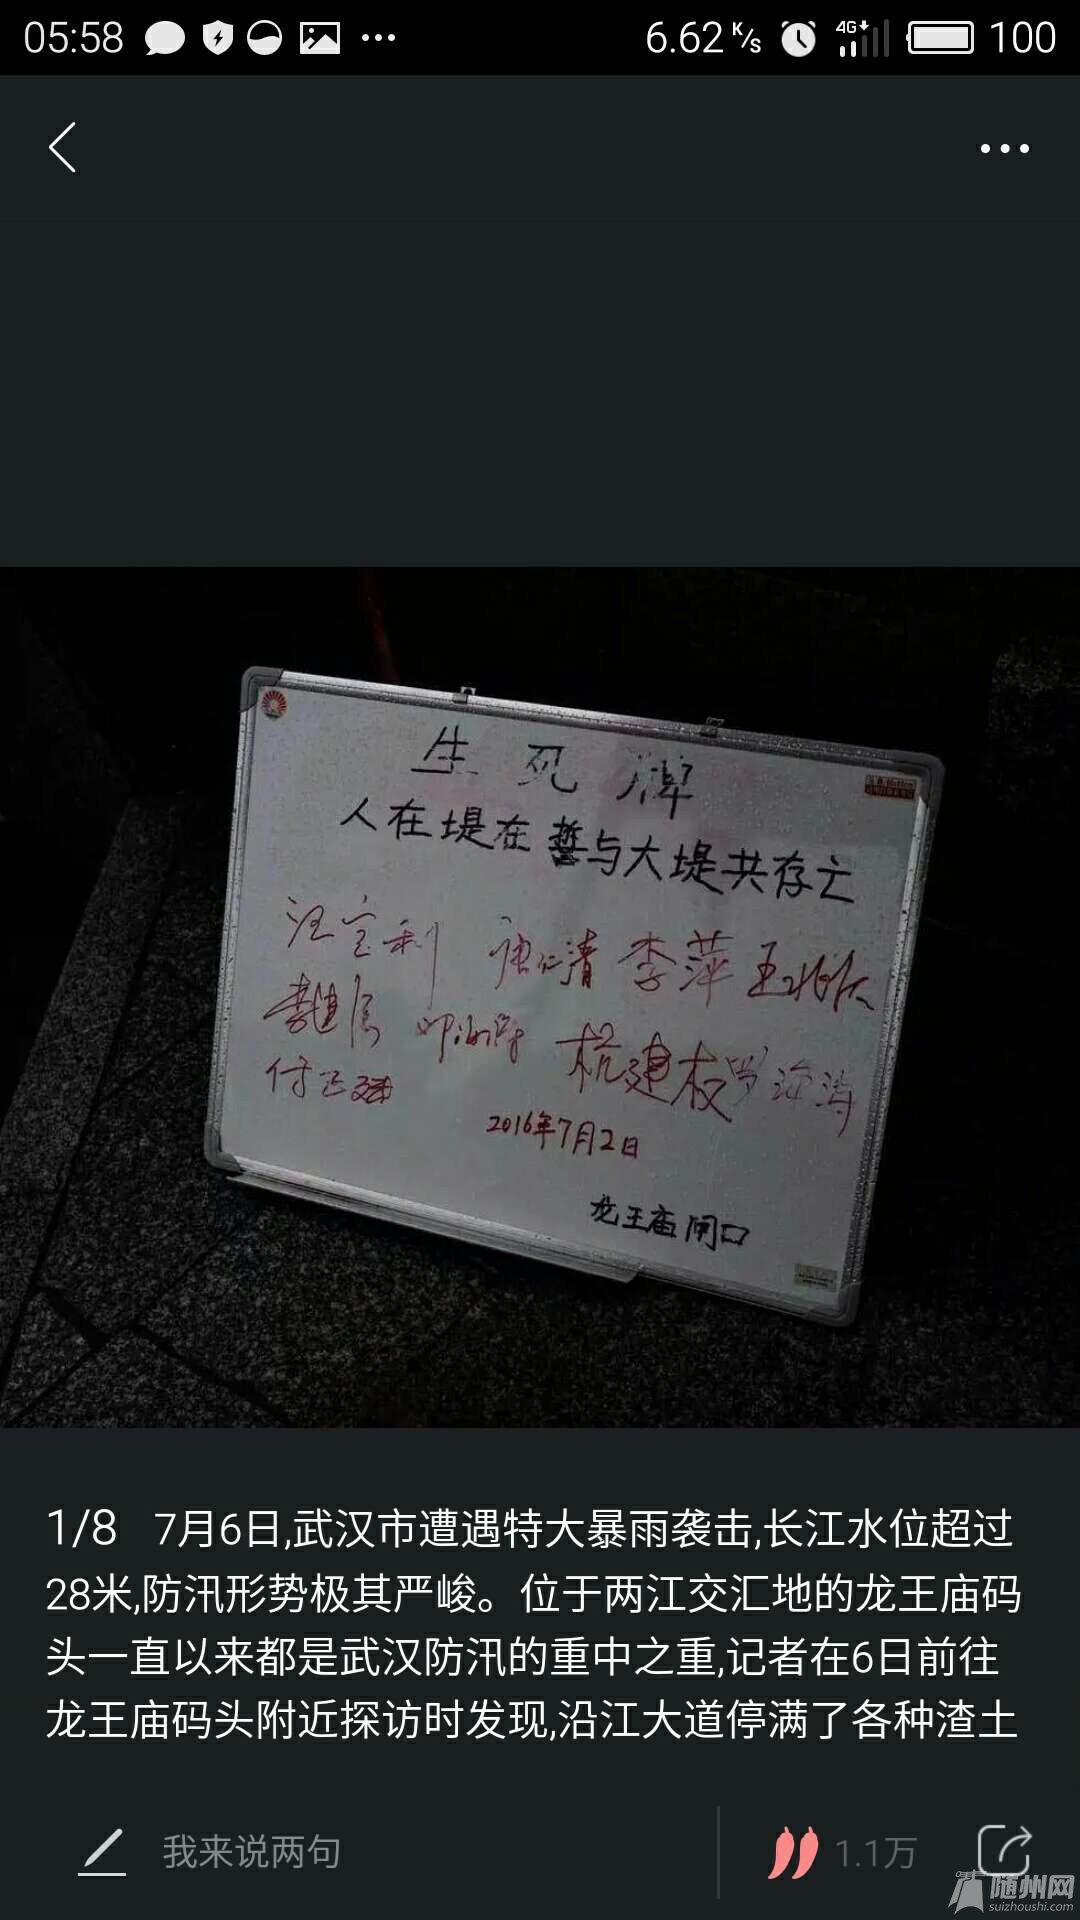 05:58
6.62 K/s
4G+
100
生死牌
人在堤在 誓与大堤共存亡
汪宝利 唐仁清 李萍
杭建权 罗海涛
2016年7月2日
龙王庙闸口
1/8 7月6日,武汉市遭遇特大暴雨袭击,长江水位超过
28米,防汛形势极其严峻。位于两江交汇地的龙王庙码
头一直以来都是武汉防汛的重中之重,记者在6日前往
龙王庙码头附近探访时发现,沿江大道停满了各种渣土
我来说两句
1.1万
随州网
suizhoushi.com